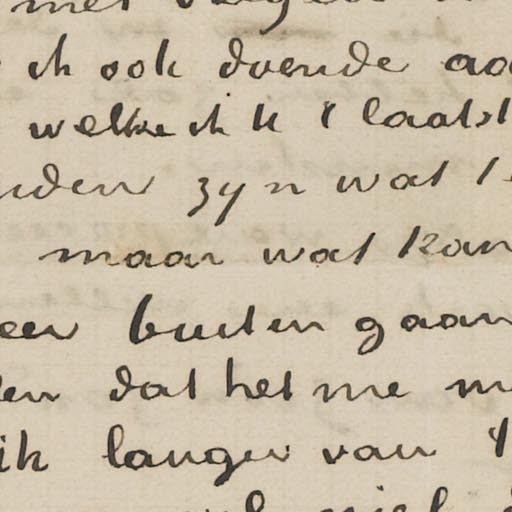 met
ik ook doende aa
welke ik U 't laatst
uden zyn wat
maar wat kan
eer buiten gaan
en dat het me m
ik langer van
niet